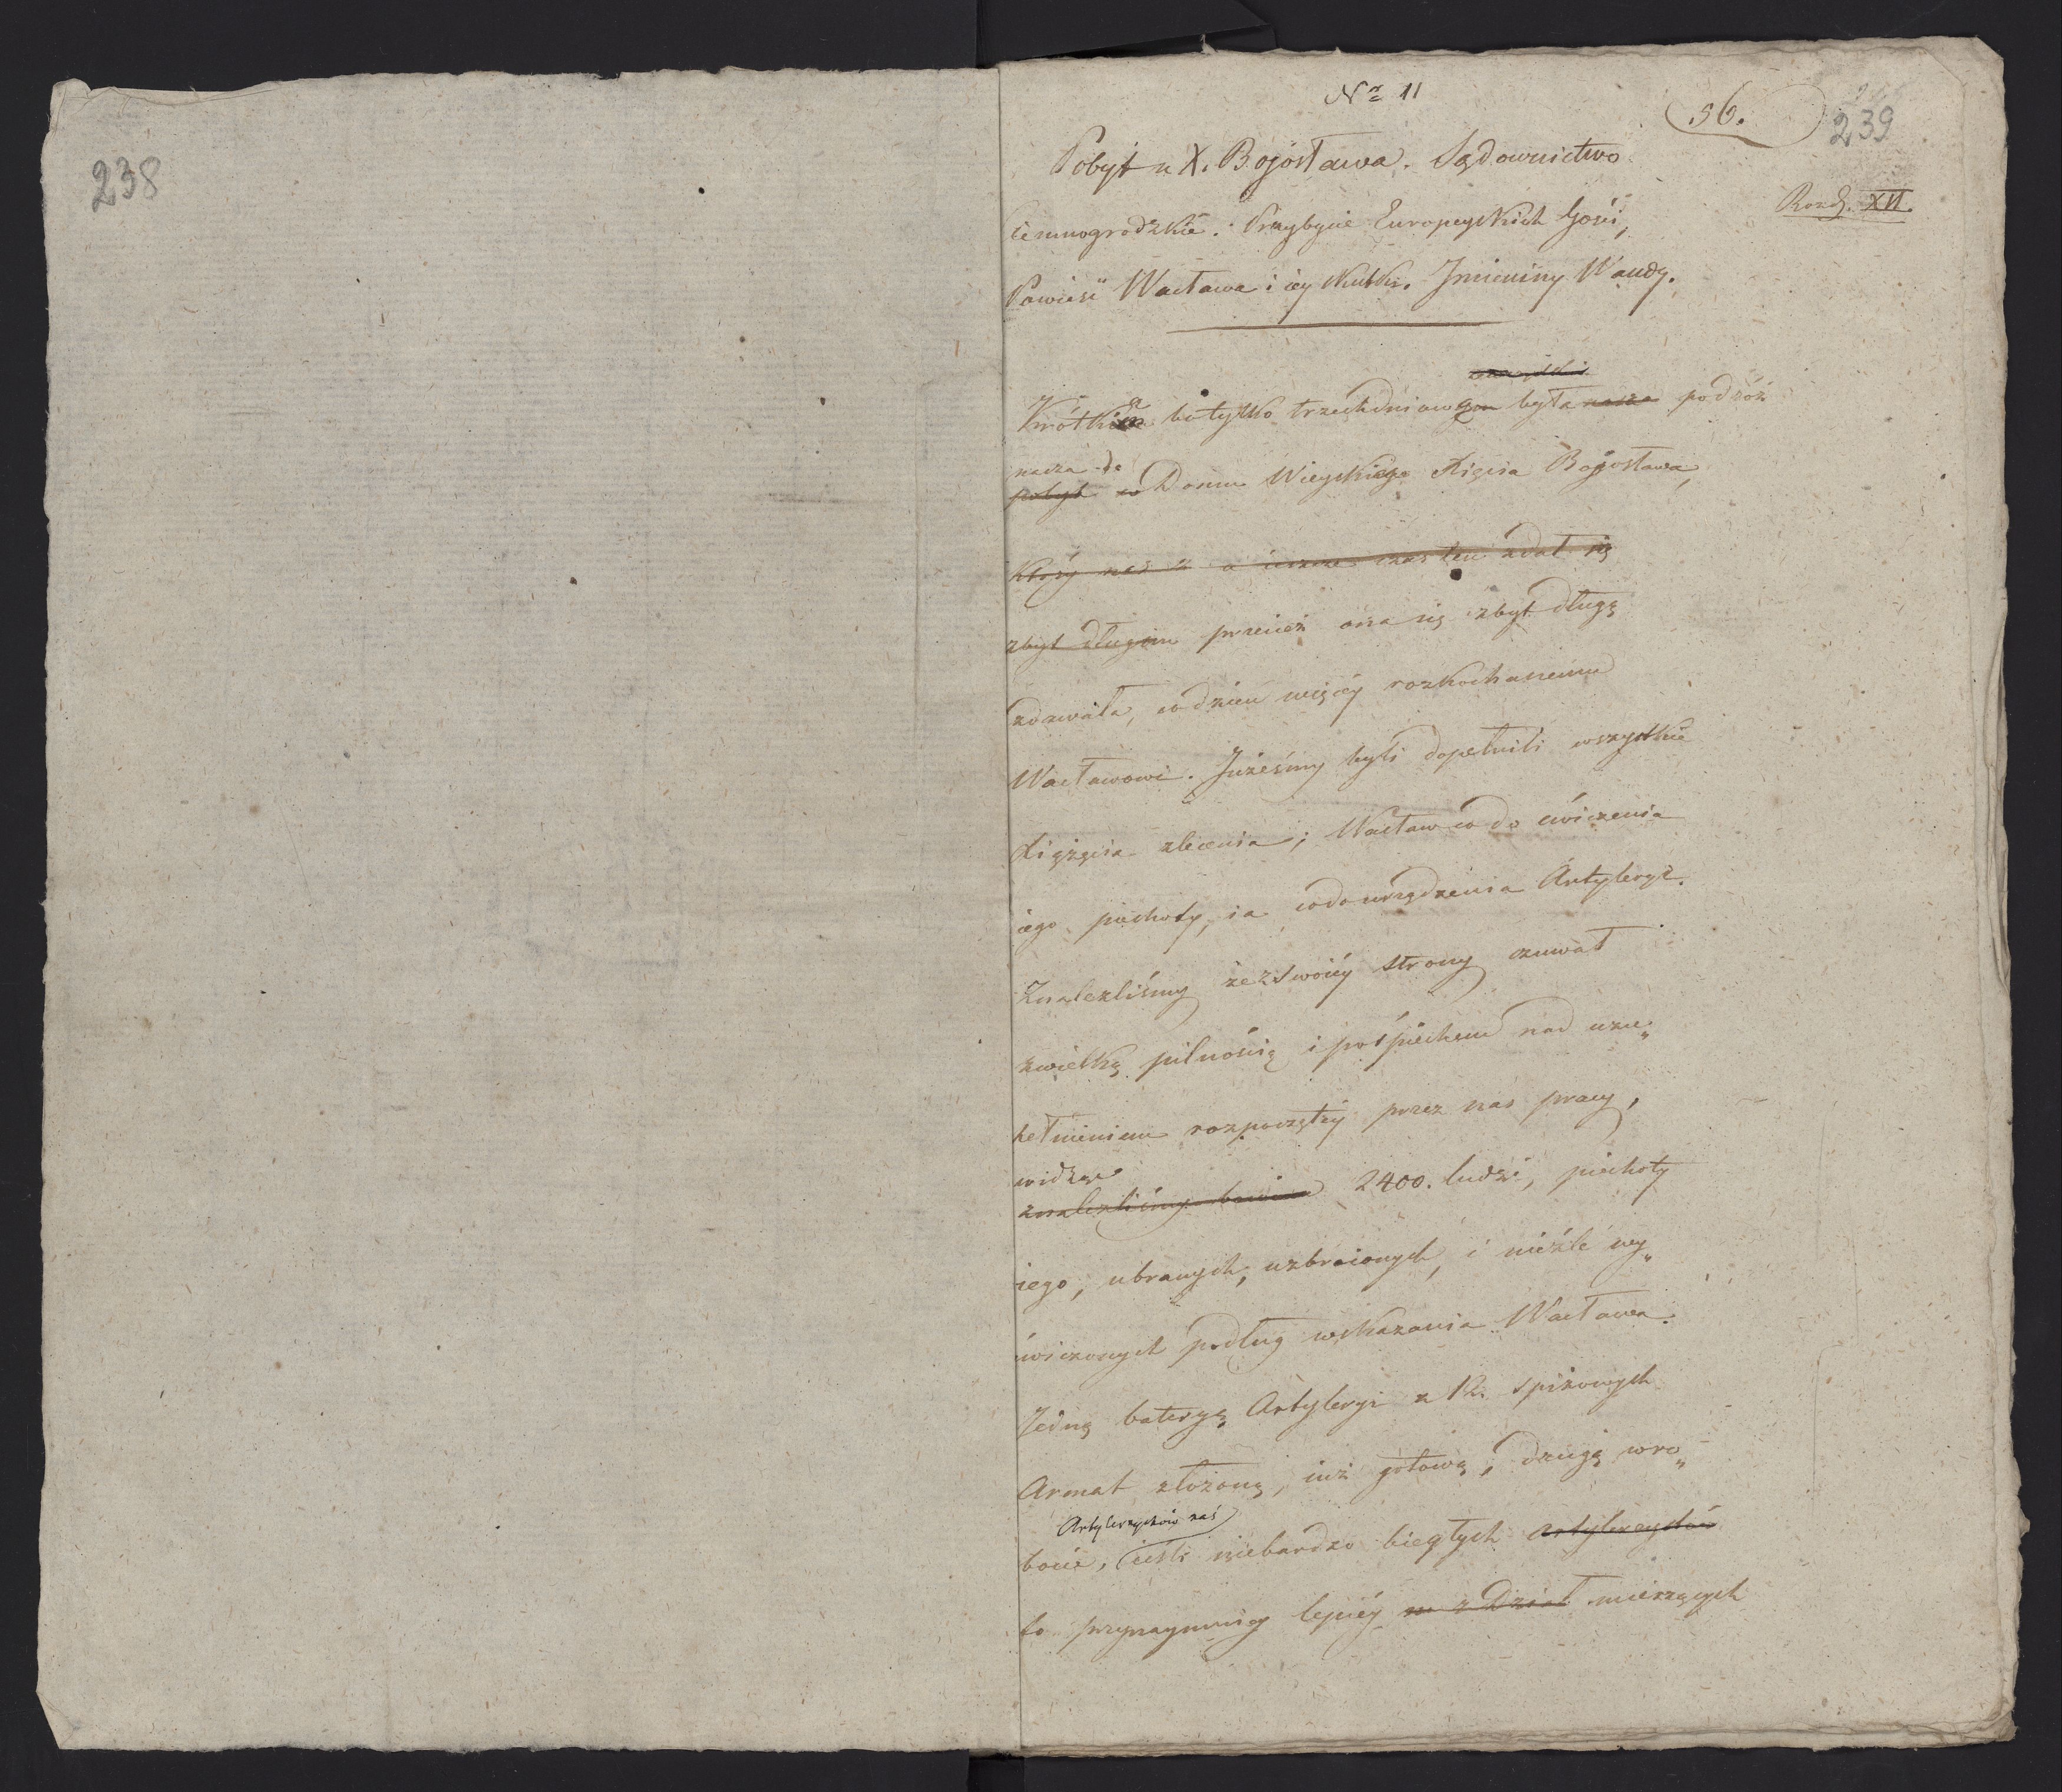 238
Nro 11
56.
239
Rozdz. XII.
Pobyt u X. Bogosława. Sądownictwo
Ciemnogrodzkie. Przybycie Europeyskich Gości,
Powieść Wacława i iey skutki. Imieniny Wandy.
Krótka bo tylko trzechdniowa była nasza podróż
nasza do
pobyt w Domu Wieyskiego Xięcia Bogosława,
który nas a czas ten zdał się
zbyt długim przecież ona się zbyt długą
zdawała, co dzień więcéy rozkochanemu
Wacławowi. Jużeśmy byli dopełnili wszystkie
Xiążęcia zlecenia; Wacław co do ćwiczenia
iego piechoty, ia co do urządzenia Artyleryi.
Znaleźliśmy że z swoiéy strony czuwał
z wielką pilnością i pośpiechem nad uzu„
pełnieniem rozpoczętéy przez nas pracy,
widząc
znaleźliśmy bowiem 2400. ludzi, piechoty
iego, ubranych, uzbroionych, i nieźle wy„
ćwiczonych podług wskazania Wacława.
Jedną bateryą Artyleryi z 12. spiżowych
Armat złożoną, iuż gotową, drugą w ro„
Artylerzystów zaś
bocie, ieśli niebardzo biegłych artylerzystów
to przynaymniéy lepiéy z Dział mierzących